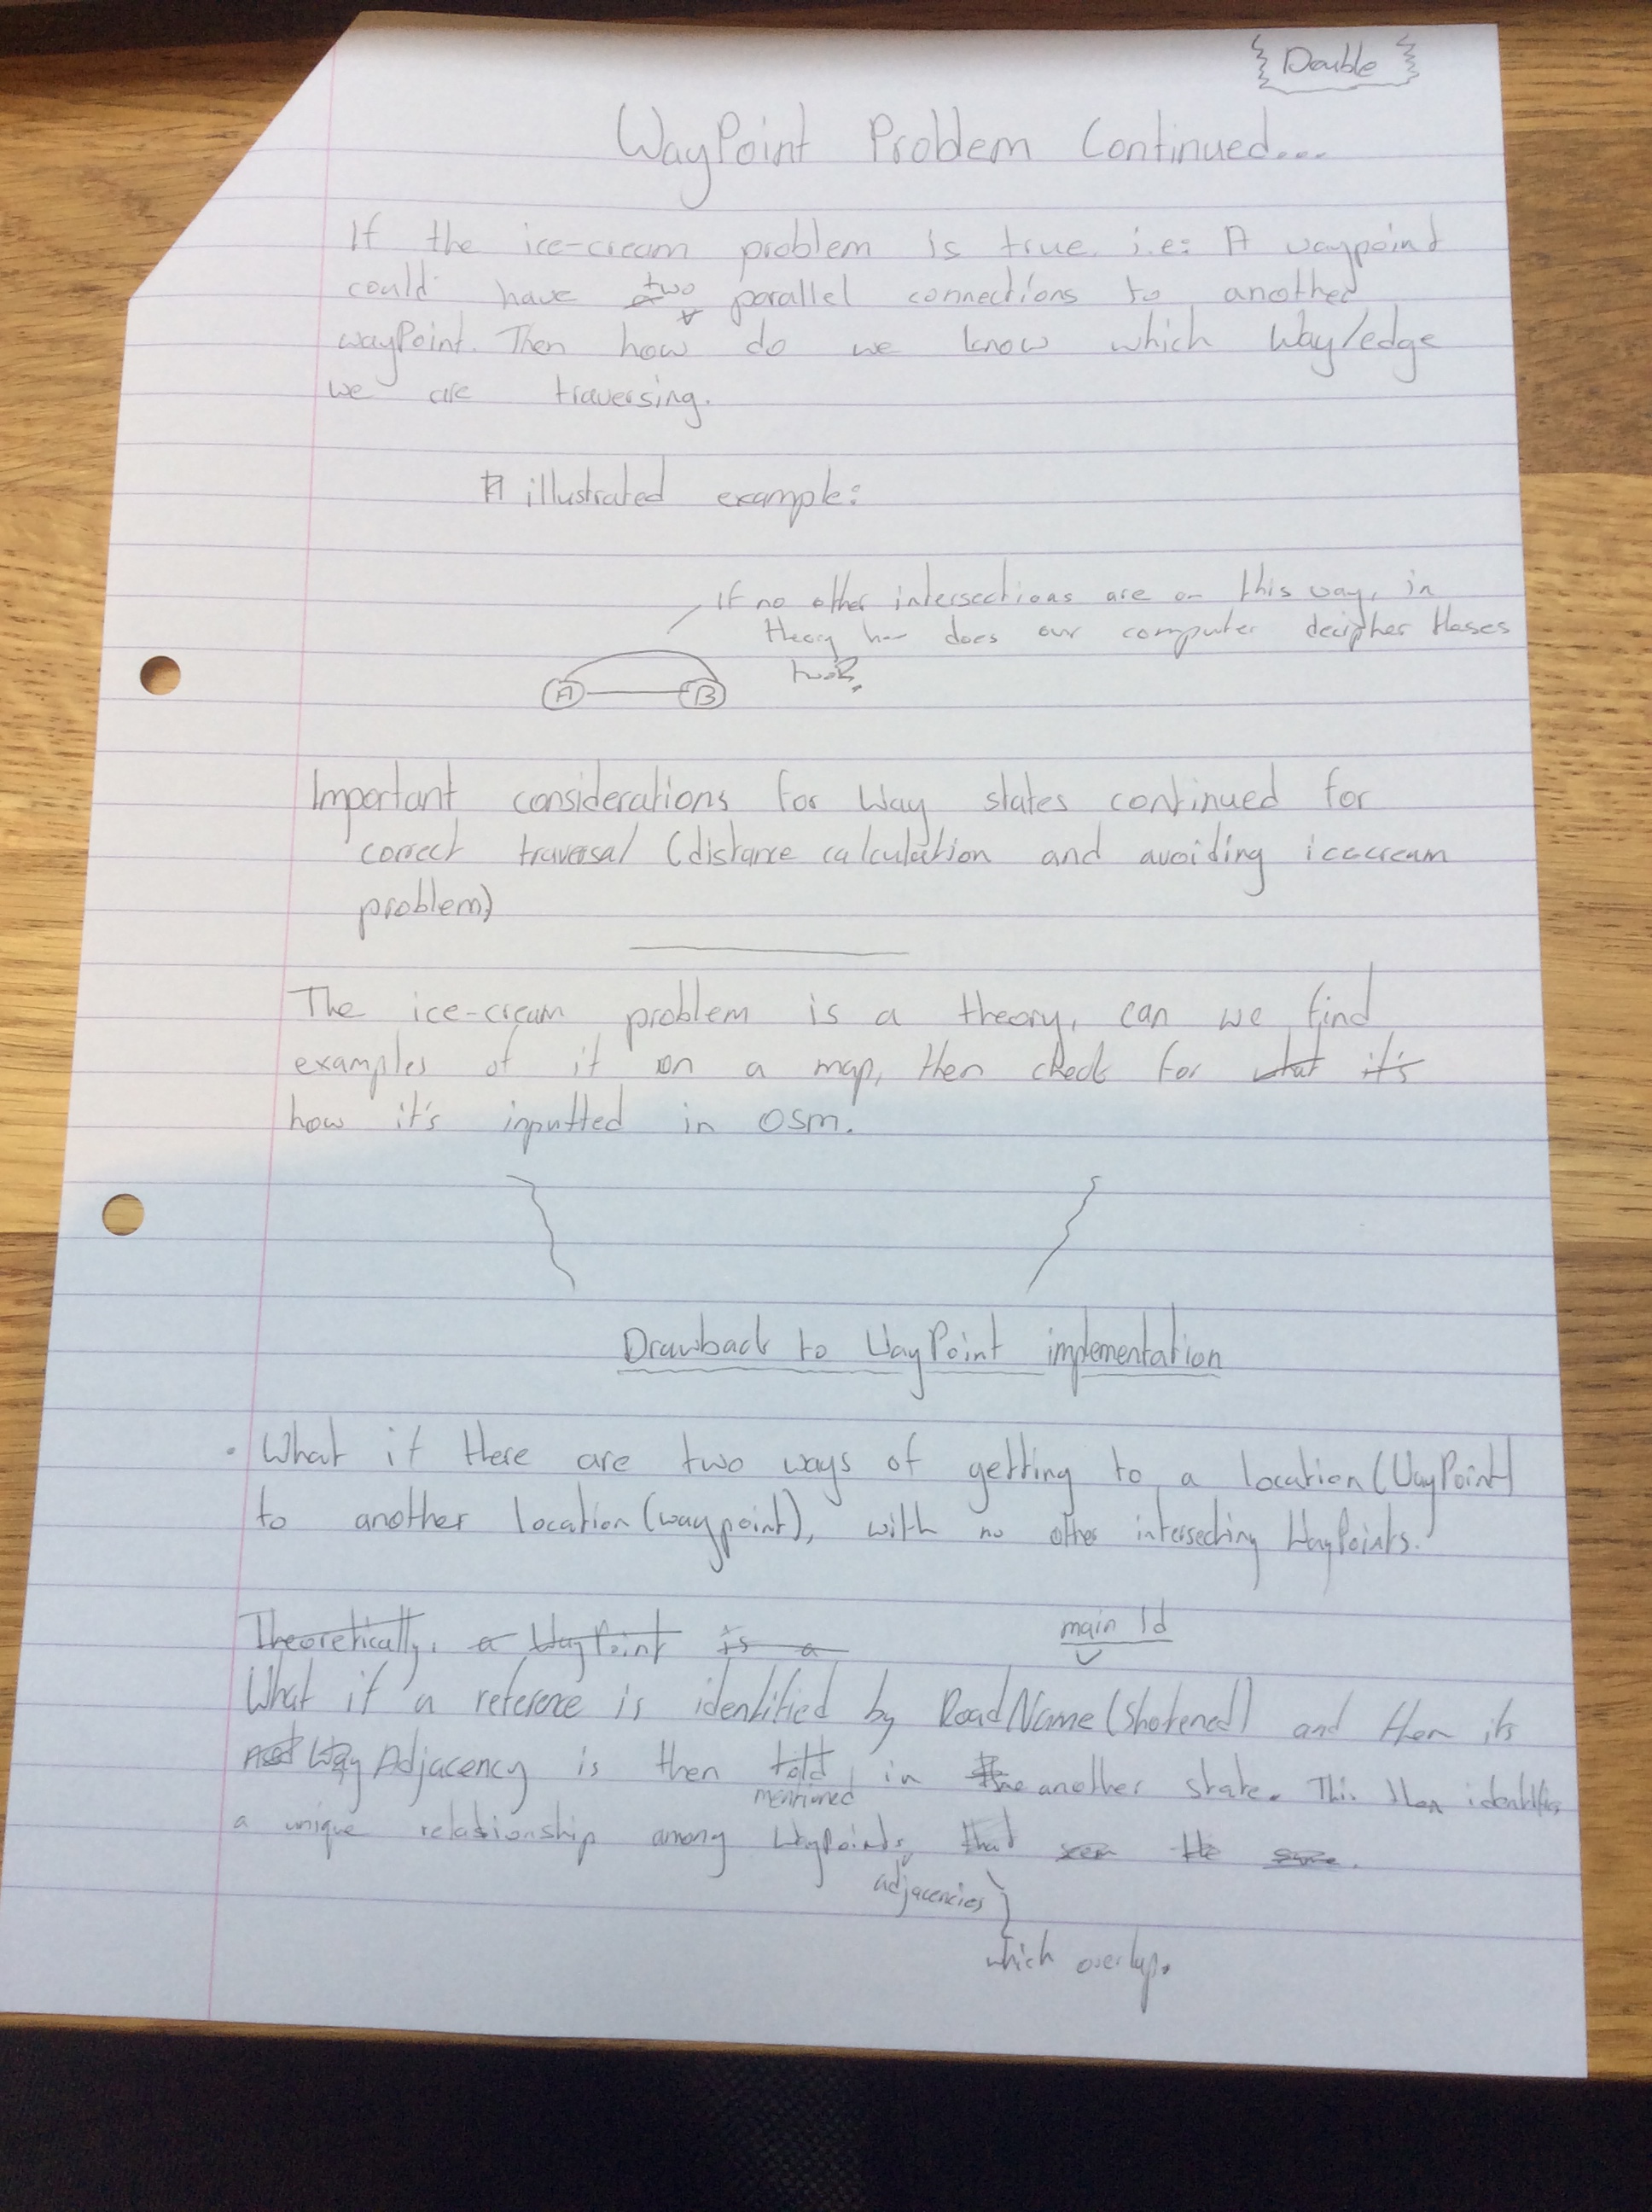 Double
WayPoint Problem Continued...
If the ice-cream problem is true. i.e: A waypoint
could have a two parallel connections to another
wayPoint. Then how do we know which Way/edge
we are traversing.
A illustrated example:
If no other intersections are on this way, in
theory how does our computer decipher theses
two?
A B
Important considerations for Way states continued for
correct traversal (distance calculation and avoiding icecream
problem)
The ice-cream problem is a theory, can we find
examples of it on a map, then check for what it's
how it's inputted in OSM.
Drawback to WayPoint implementation
• What if there are two ways of getting to a location (WayPoint)
to another location (waypoint), with no other intersecting WayPoints.
Theoretically, a WayPoint is a
main Id
What if a reference is identified by RoadName (Shortened) and then its
Way Adjacency is then told in the another state. This then identifies
mentioned
a unique relationship among WayPoints, that seem the same.
adjacencies
which overlap.